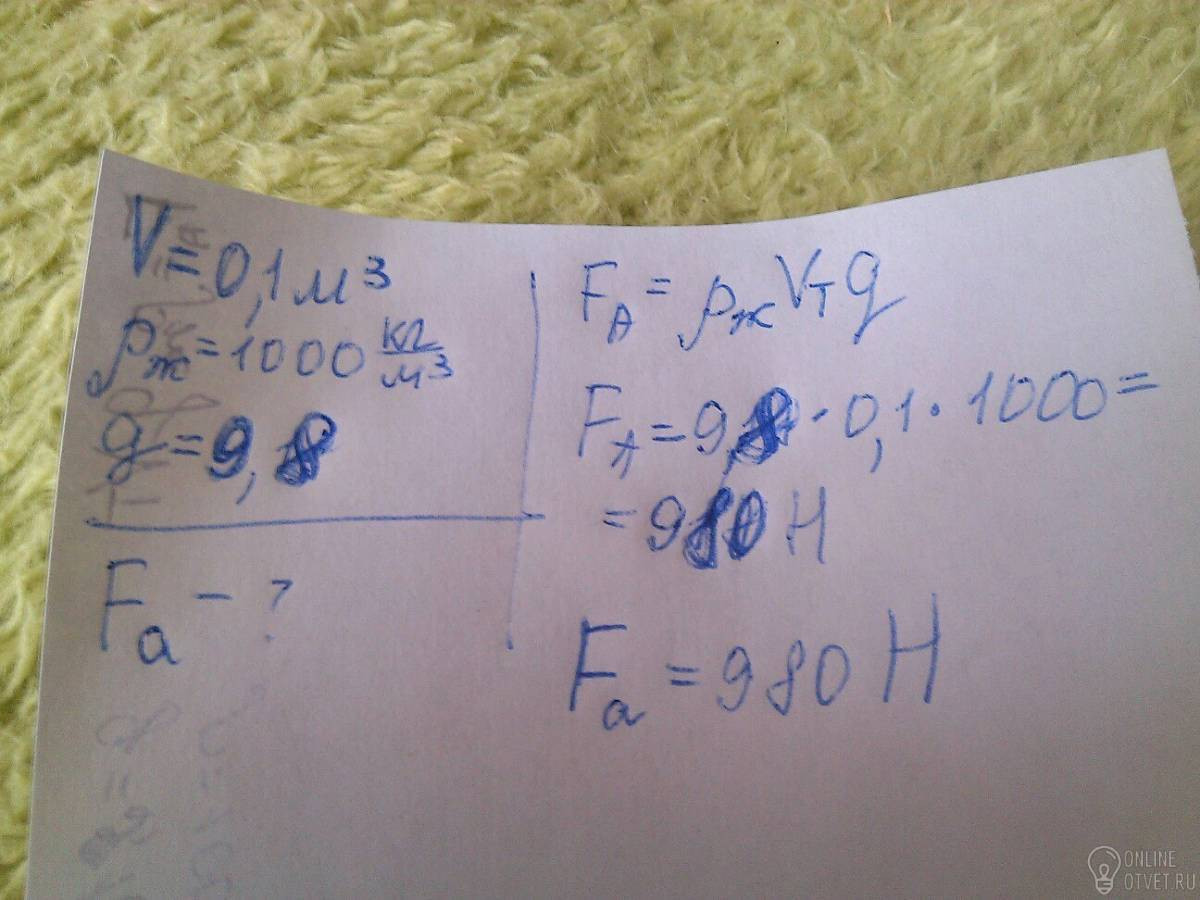 V = 0,1 м³
ρж = 1000 кг/м³
g = 9,8
Fа - ?
FА = ρж Vт g
FА = 9,8 · 0,1 · 1000 =
= 980 Н
Fа = 980 Н
ONLINE
OTVET.RU